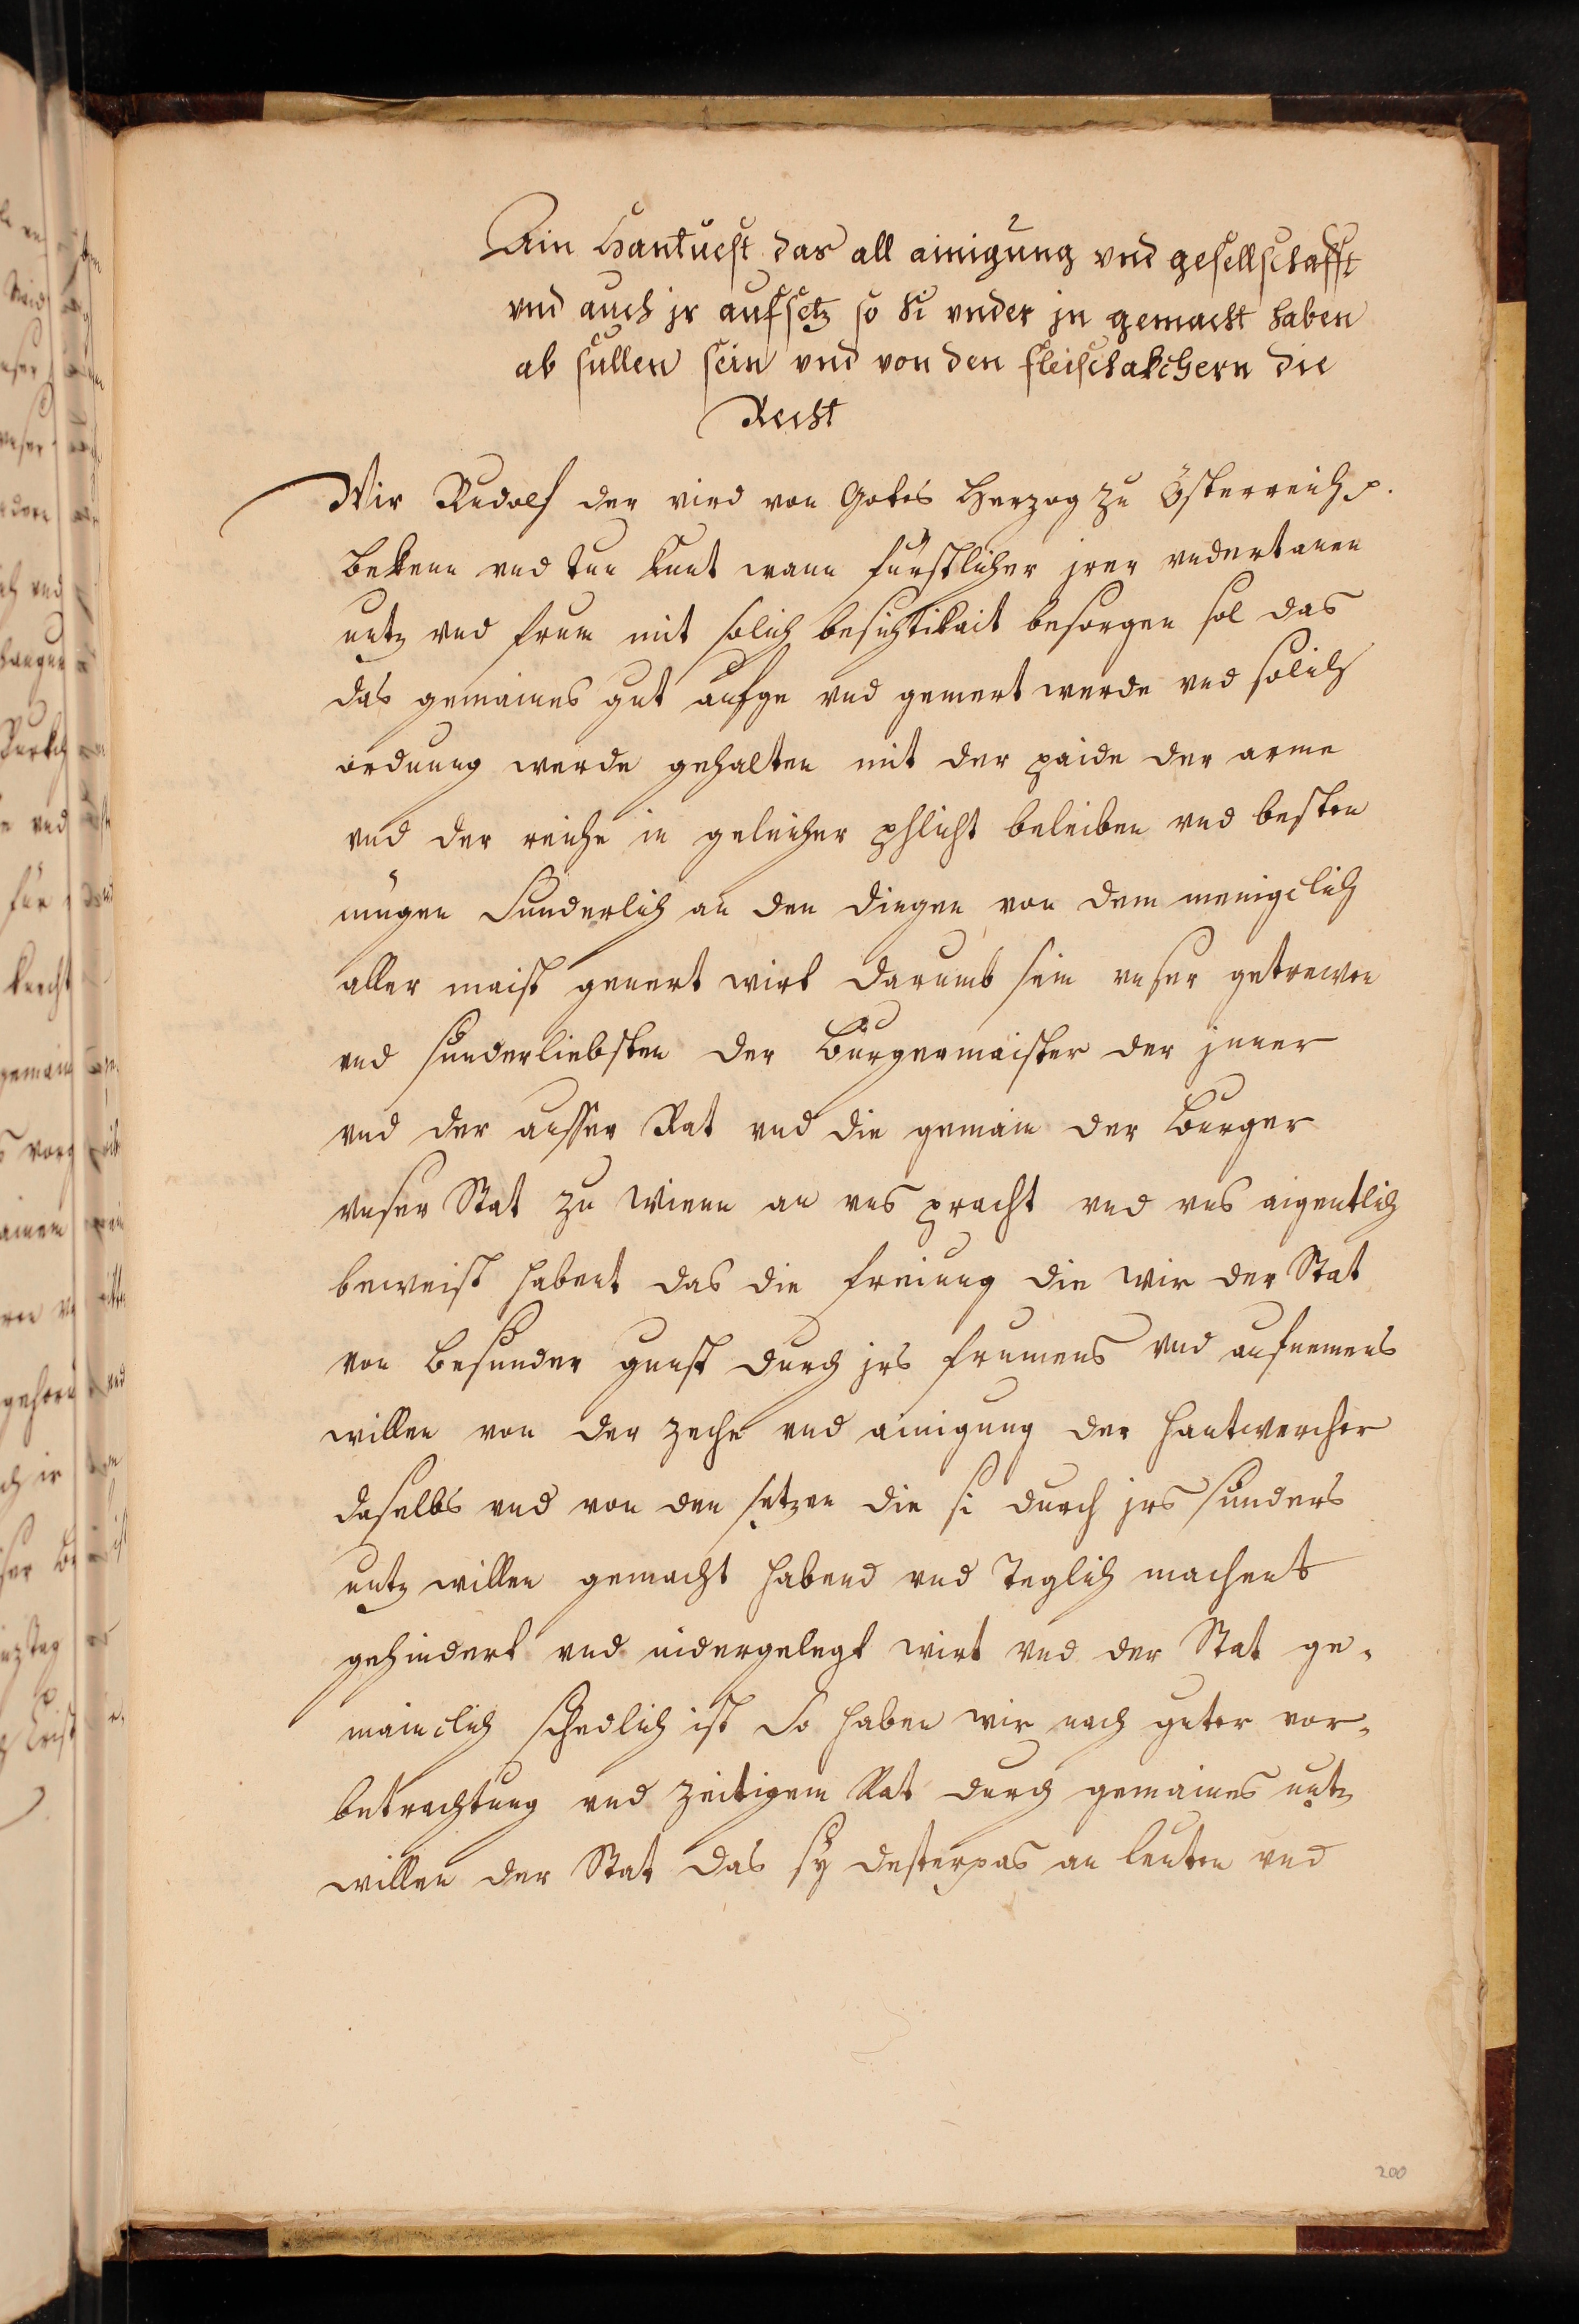 Ain Hantuest das all ainigung vnd gesellschafft
vnd auch jr aufsetz so si vnder jn gemacht haben
ab sullen sein vnd von den fleischakchern die
Recht
Wir Rudolf der vird von Gotes Herzog zu Österreich p.
bekenn vnd tun kunt wann fürstlicher jrer vndertanen
nutz vnd frum mit solich besichtikait besorgen sol das
das gemaines gut aufge vnd gemert werde vnd solich
ordnung werde gehalten mit der paide der arme
vnd der reiche in geleicher phlicht beleiben vnd besten
mügen Sunderlich an den dingen von dem meniclich
aller maist genert wirt darumb sein vnser getrewen
vnd sunderliebsten der Burgermaister der jnner
vnd der ausser Rat vnd die gemain der Burger
vnser Stat zu Wienn an vns pracht vnd vns aigentlich
beweist habent das die freiung die wir der Stat
von besunder gunst durch jrs frumens vnd aufnemens
willen von der zeche vnd ainigung der hantwercher
daselbs vnd von den setzen die si durch jrs sunders
nutz willen gemacht habend vnd Teglich machent
gehindert vnd nidergelegt wirt vnd der Stat ge-
mainclich schedlich ist So haben wir nach guter vor-
betrachtung vnd zeitigem Rat durch gemaines nutz
willen der Stat das sy desterpas an leuten vnd
200